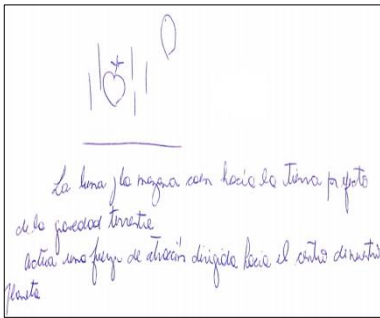 La luna y la manzana caen hacia la Tierra por efecto
de la gravedad terrestre
actúa una fuerza de atracción dirigida hacia el centro de nuestro
planeta